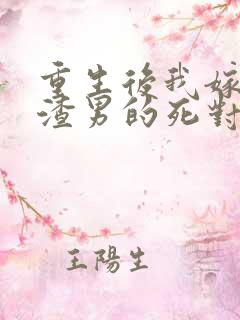 重生後我嫁
渣男的死對
王陽生